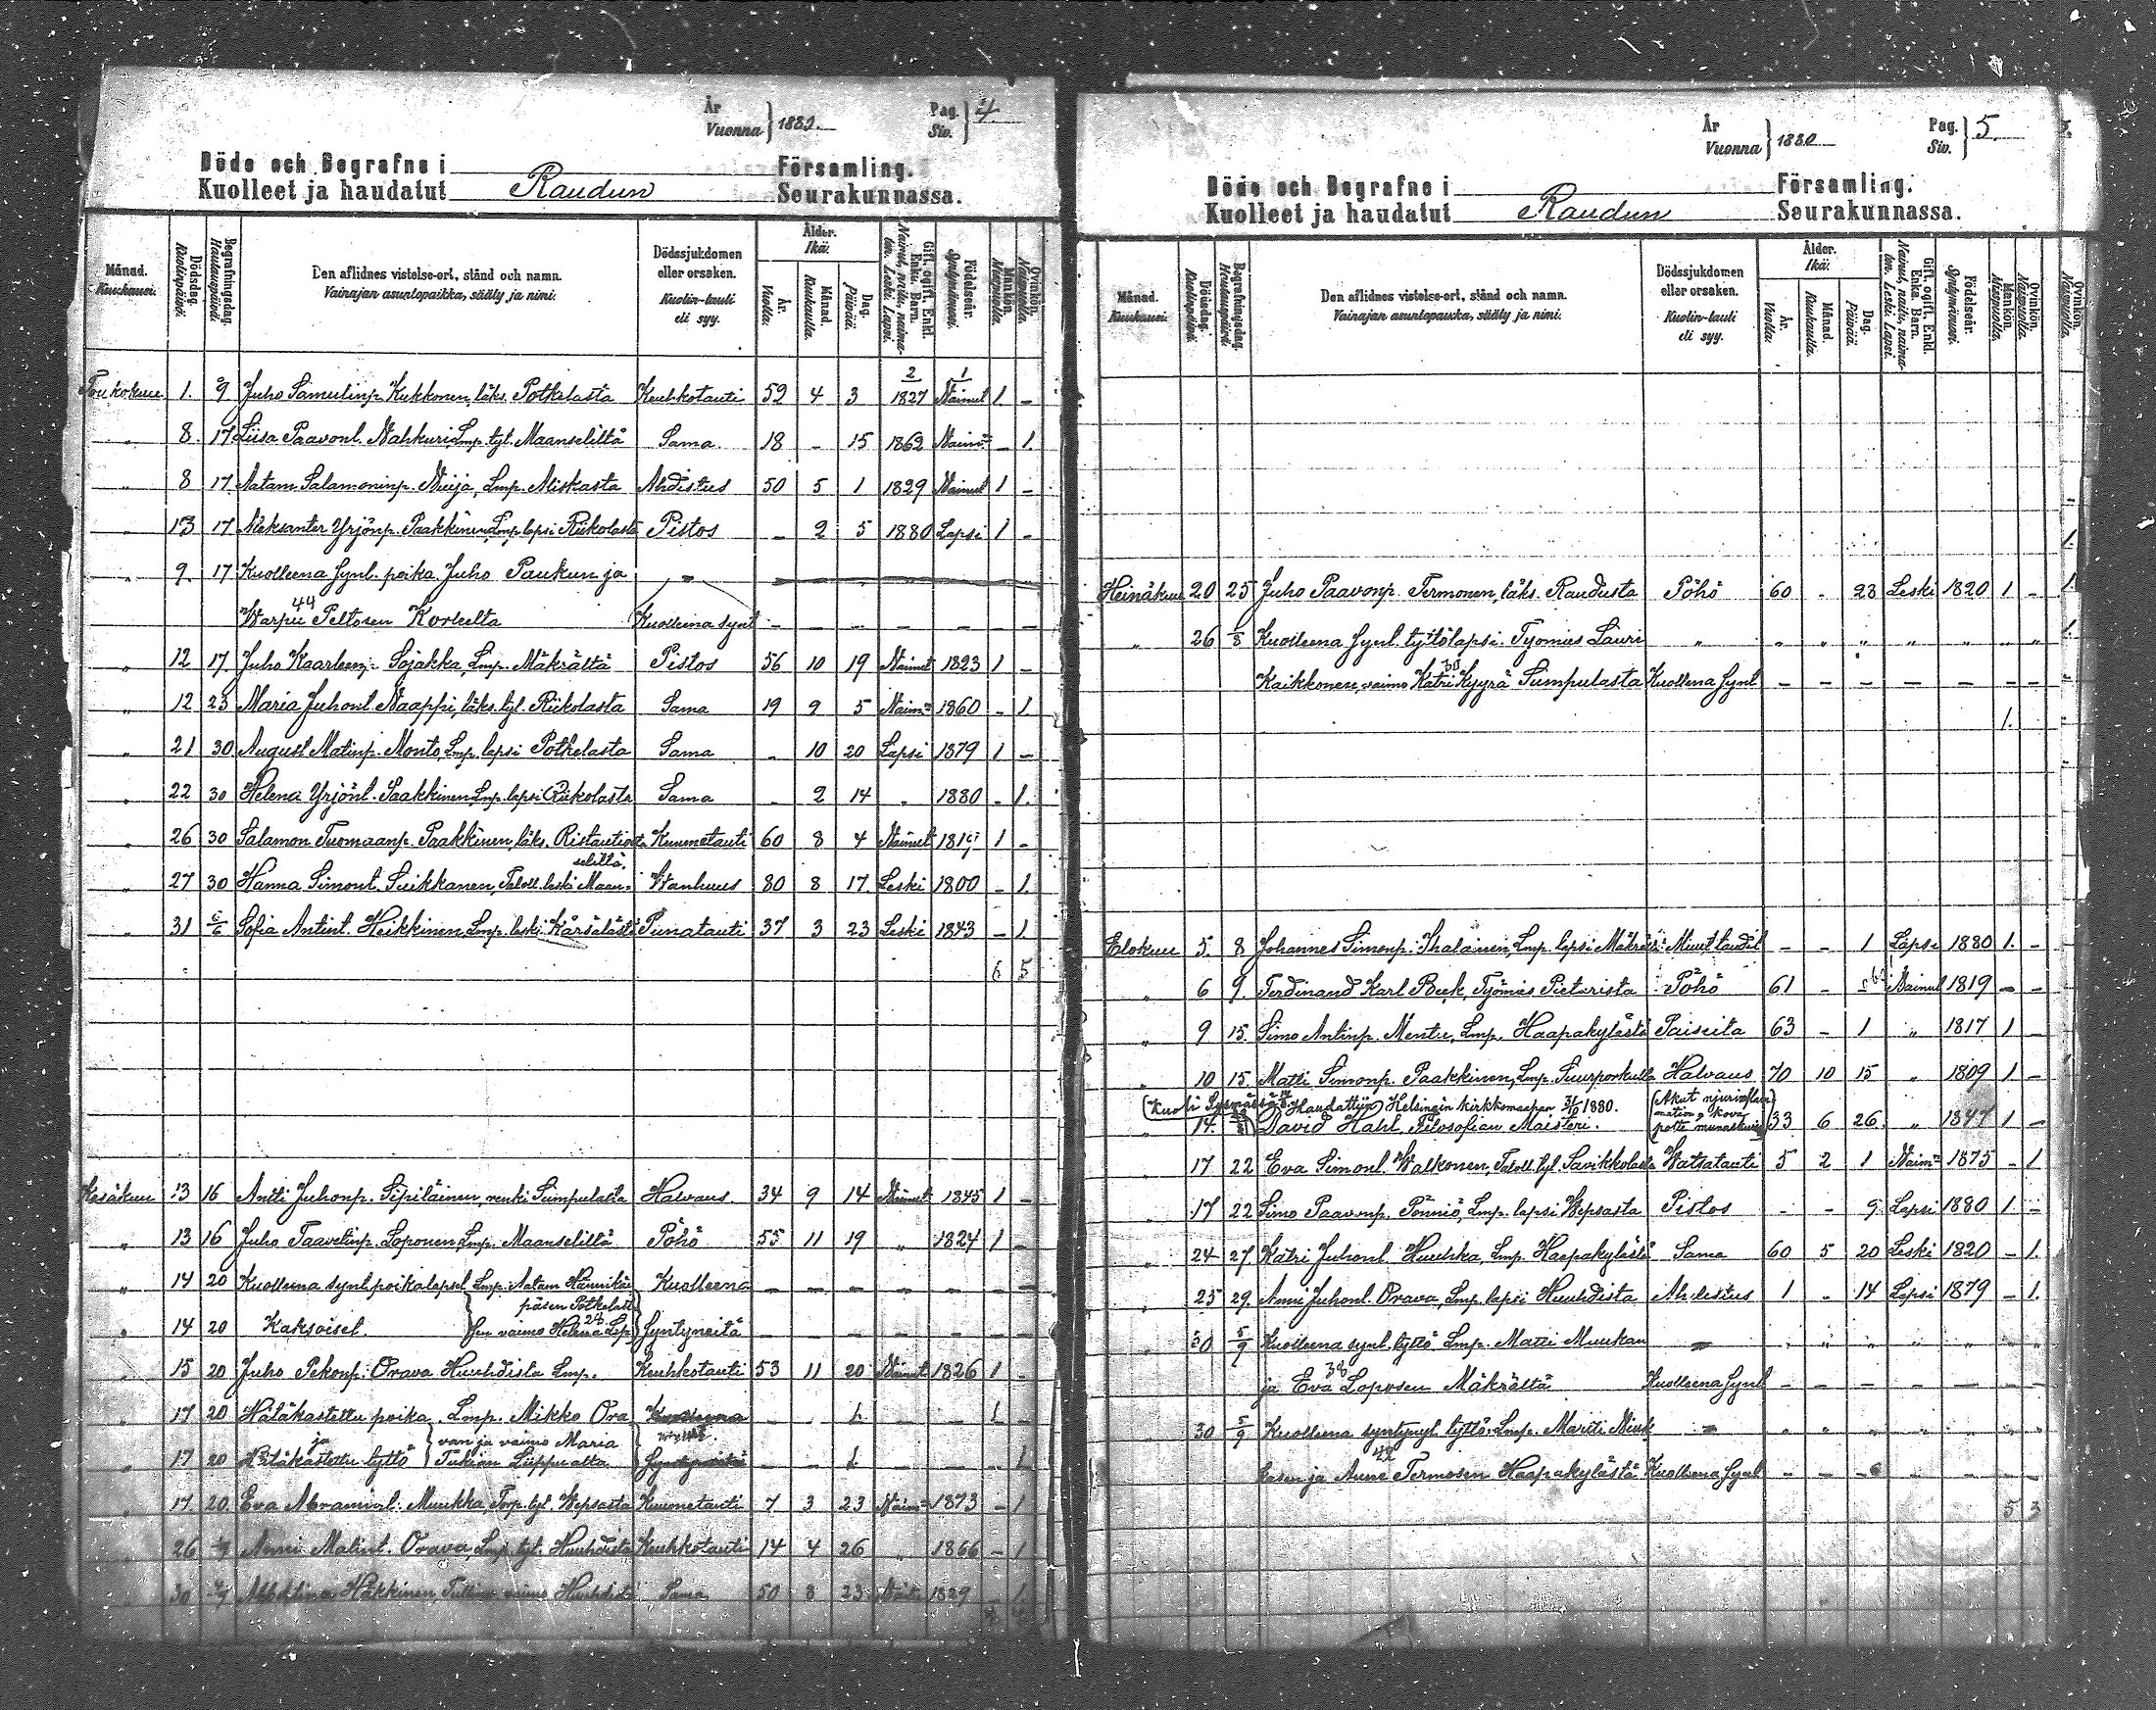 År
Vuonna } 1880.
Pag.
Siv. } 4.
Döde och Begrafne i Församling.
Kuolleet ja haudatut Raudun Seurakunnassa.
Månad. Kuukausi.
Dödsdag. Kuolinpäivä.
Begrafningsdag. Hautauspäivä.
Den aflidnes vistelse-ort, stånd och namn.
Vainajan asuntopaikka, sääty ja nimi.
Dödssjukdomen eller orsaken.
Kuolin-tauti eli syy.
Ålder. Ikä.
År. Vuotta.
Månad. Kuukautta.
Dag. Päivää.
Gift, ogift, Enkl. Enka. Barn.
Nainut, naitu, naimaton. Leski. Lapsi.
Födelseår. Syntymävuosi.
Mankön. Miespuolia.
Qvinkön. Naispuolia.
2 1
Toukokuu 1. 9 Juho Samulinp. Kukkonen, läks. Potkelasta Keuhkotauti 52 4 3 1827 Nainut 1 -
" 8. 17 Liisa Paavonl. Nahkuri, Lmp. tyt. Maanseliltä Sama 18 - 15 1862 Naim= - 1.
" 8 17 Aatam Salamoninp. Nuija, Lmp. Miskasta Ahdistus 50 5 1 1829 Nainut 1 -
" 13 17 Aleksanter Yrjönp. Paakkinen, Lmp. lapsi Riikolasta Pistos - 2 5 1880 Lapsi 1 -
" 9. 17 Kuolleena synt. poika Juho Paukun ja "
44
Warpu Peltosen Korleelta Kuolleina synt - - - - - -
" 12 17. Juho Kaarleenp. Sojakka, Lmp. Mäkrältä Pistos 56 10 19 Nainut 1823 1 -
" 12 23 Maria Juhont. Naappi, läks. tyt. Riikolasta Sama 19 9 5 Naim= 1860 - 1.
" 21 30 August Matinp. Monto, Lmp. lapsi Potkelasta Sama - 10 20 Lapsi 1879 1 -
" 22 30 Helena Yrjönt. Paakkinen, Lmp. lapsi Riikolasta Sama - 2 14 " 1880 - 1.
" 26 30 Salamon Tuomaanp. Paakkinen, läks. Kuumetauti 60 8 4 Nainut 1819 1 -
seliltä.
" 27 30 Hanna Simont. Suikkanen, Taloll. leski Maan= Wanhuus 80 8 17. Leski 1800 - 1.
" 31 6/6 Sofia Antint. Heikkinen, Lmp. leski Kärsälästä Punatauti 37 3 23 Leski 1843 - 1.
6 5
Kesäkuu 13 16 Antti Juhonp. Sipiläinen, renki Sumpulasta Halvaus. 34 9 14 Nainut 1845 1 -
" 13 16 Juho Taavetinp. Loponen, Lmp. Maanseliltä Pöhö 55 11 19 " 1824 1 -
" 14 20 Kuolleena synt. poikalapset Lmp. Aatam Hännikäi Kuolleena - - - - - -
päsen Potkelast
" 14 20 Kaksoiset. Sen vaimo Helena Lep. 28 Syntyneitä - - - - - -
" 15 20 Juho Pekonp. Orava Huuhdista Lmp. Keuhkotauti 53 11 20 Nainut 1826 1 -
" 17 20 Hätäkastettu poika. Lmp. Mikko Ora Kuolleena - - 1. - - 1. -
ja van ja vaimo Maria
" 17 20 Hätäkastettu tyttö Tukian Liippualta Syntyneitä - - 1 - - " 1
" 17 20 Eva Abramint. Muukka, Torp. tyt. Wepsasta Kuumetauti 7 3 23 Naim= 1873 - 1
" 26 Anni Matint. Orava, Lmp. tyt. Huuhdista Keuhkotauti 14 4 26 " 1866 - 1
" 30 Albertina Häkkinen, vaimo Huuhdist Sama 50 8 23 1829 - 1.
År
Vuonna } 1880
Pag.
Siv. } 5.
Döde och Begrafne i Församling.
Kuolleet ja haudatut Raudun Seurakunnassa.
Månad. Kuukausi.
Dödsdag. Kuolinpäivä.
Begrafningsdag. Hautauspäivä.
Den aflidnes vistelse-ort, stånd och namn.
Vainajan asuntopaikka, sääty ja nimi.
Dödssjukdomen eller orsaken.
Kuolin-tauti eli syy.
Ålder. Ikä.
År. Vuotta.
Månad. Kuukautta.
Dag. Päivää.
Gift, ogift, Enkl. Enka. Barn.
Nainut, naitu, naimaton. Leski. Lapsi.
Födelseår. Syntymävuosi.
Mankön. Miespuolia.
Qvinkön. Naispuolia.
Qvinkön. Naispuolia.
Heinäkuu 20 25 Juho Paavonp. Termonen, läks. Raudusta Pöhö 60 - 23 Leski 1820 1 -
" 26 1/8 Kuolleena synt. tyttölapsi. Tyomies Lauri " " " " " " " "
30
Kaikkonen, vaimo Katri Kyyrä Sumpulasta Kuolleena Synt - - - - - - -
1.
Elokuu 5. 8 Johannes Simonp. Ihalainen, Lmp. lapsi Mäkrält Muut taudit - - 1 Lapsi 1880 1. -
" 6 9. Ferdinand Karl Beek, Työmies Pietarista Pöhö 61 - - Nainut 1819 - -
" 9 15. Simo Antinp. Mentu, Lmp. Haapakylästä Paiseita 63 - 1 " 1817 1 -
" 10 15. Matti Simonp. Paakkinen, Lmp. Suurporkulla Halvaus 70 10 15 " 1809 1 -
(Kuoli Haudattiin Helsingin kirkkomaapan 31/10 1880. (Akut njurinflam
mation, kova
" 14. David Hahl, Filosofian Maisteri. potte munaskuis) 33 6 26. " 1847 1 -
" 17 22 Eva Simonl. Walkonen, Taloll. tyt. Savikkolasta Watsatauti 5 2 1 Naim= 1875 - 1
" 17 22 Simo Paavonp. Pönniö, Lmp. lapsi Wepsasta Pistos - - 9. Lapsi 1880 1. -
" 24 27. Katri Juhonl. Huuhka, Lmp. Haapakylästä Sama 60 5 20 Leski 1820 - 1.
" 25 29. Anni Juhonl. Orava, Lmp. lapsi Huuhdista Ahdistus 1 " 14 Lapsi 1879 - 1.
" 30 5/9 Kuolleena synt. tyttö Lmp. Matti Muukan " " " " " " "
38
ja Eva Loposen Mäkrältä Kuolleena Synt - - - - - - -
" 30 5/9 Kuolleena syntynyt tyttö, Lmp. Martti " " " " " " "
42
ja Anna Termosen Haapakylästä Kuolleena Synt - - - - - - -
5 3